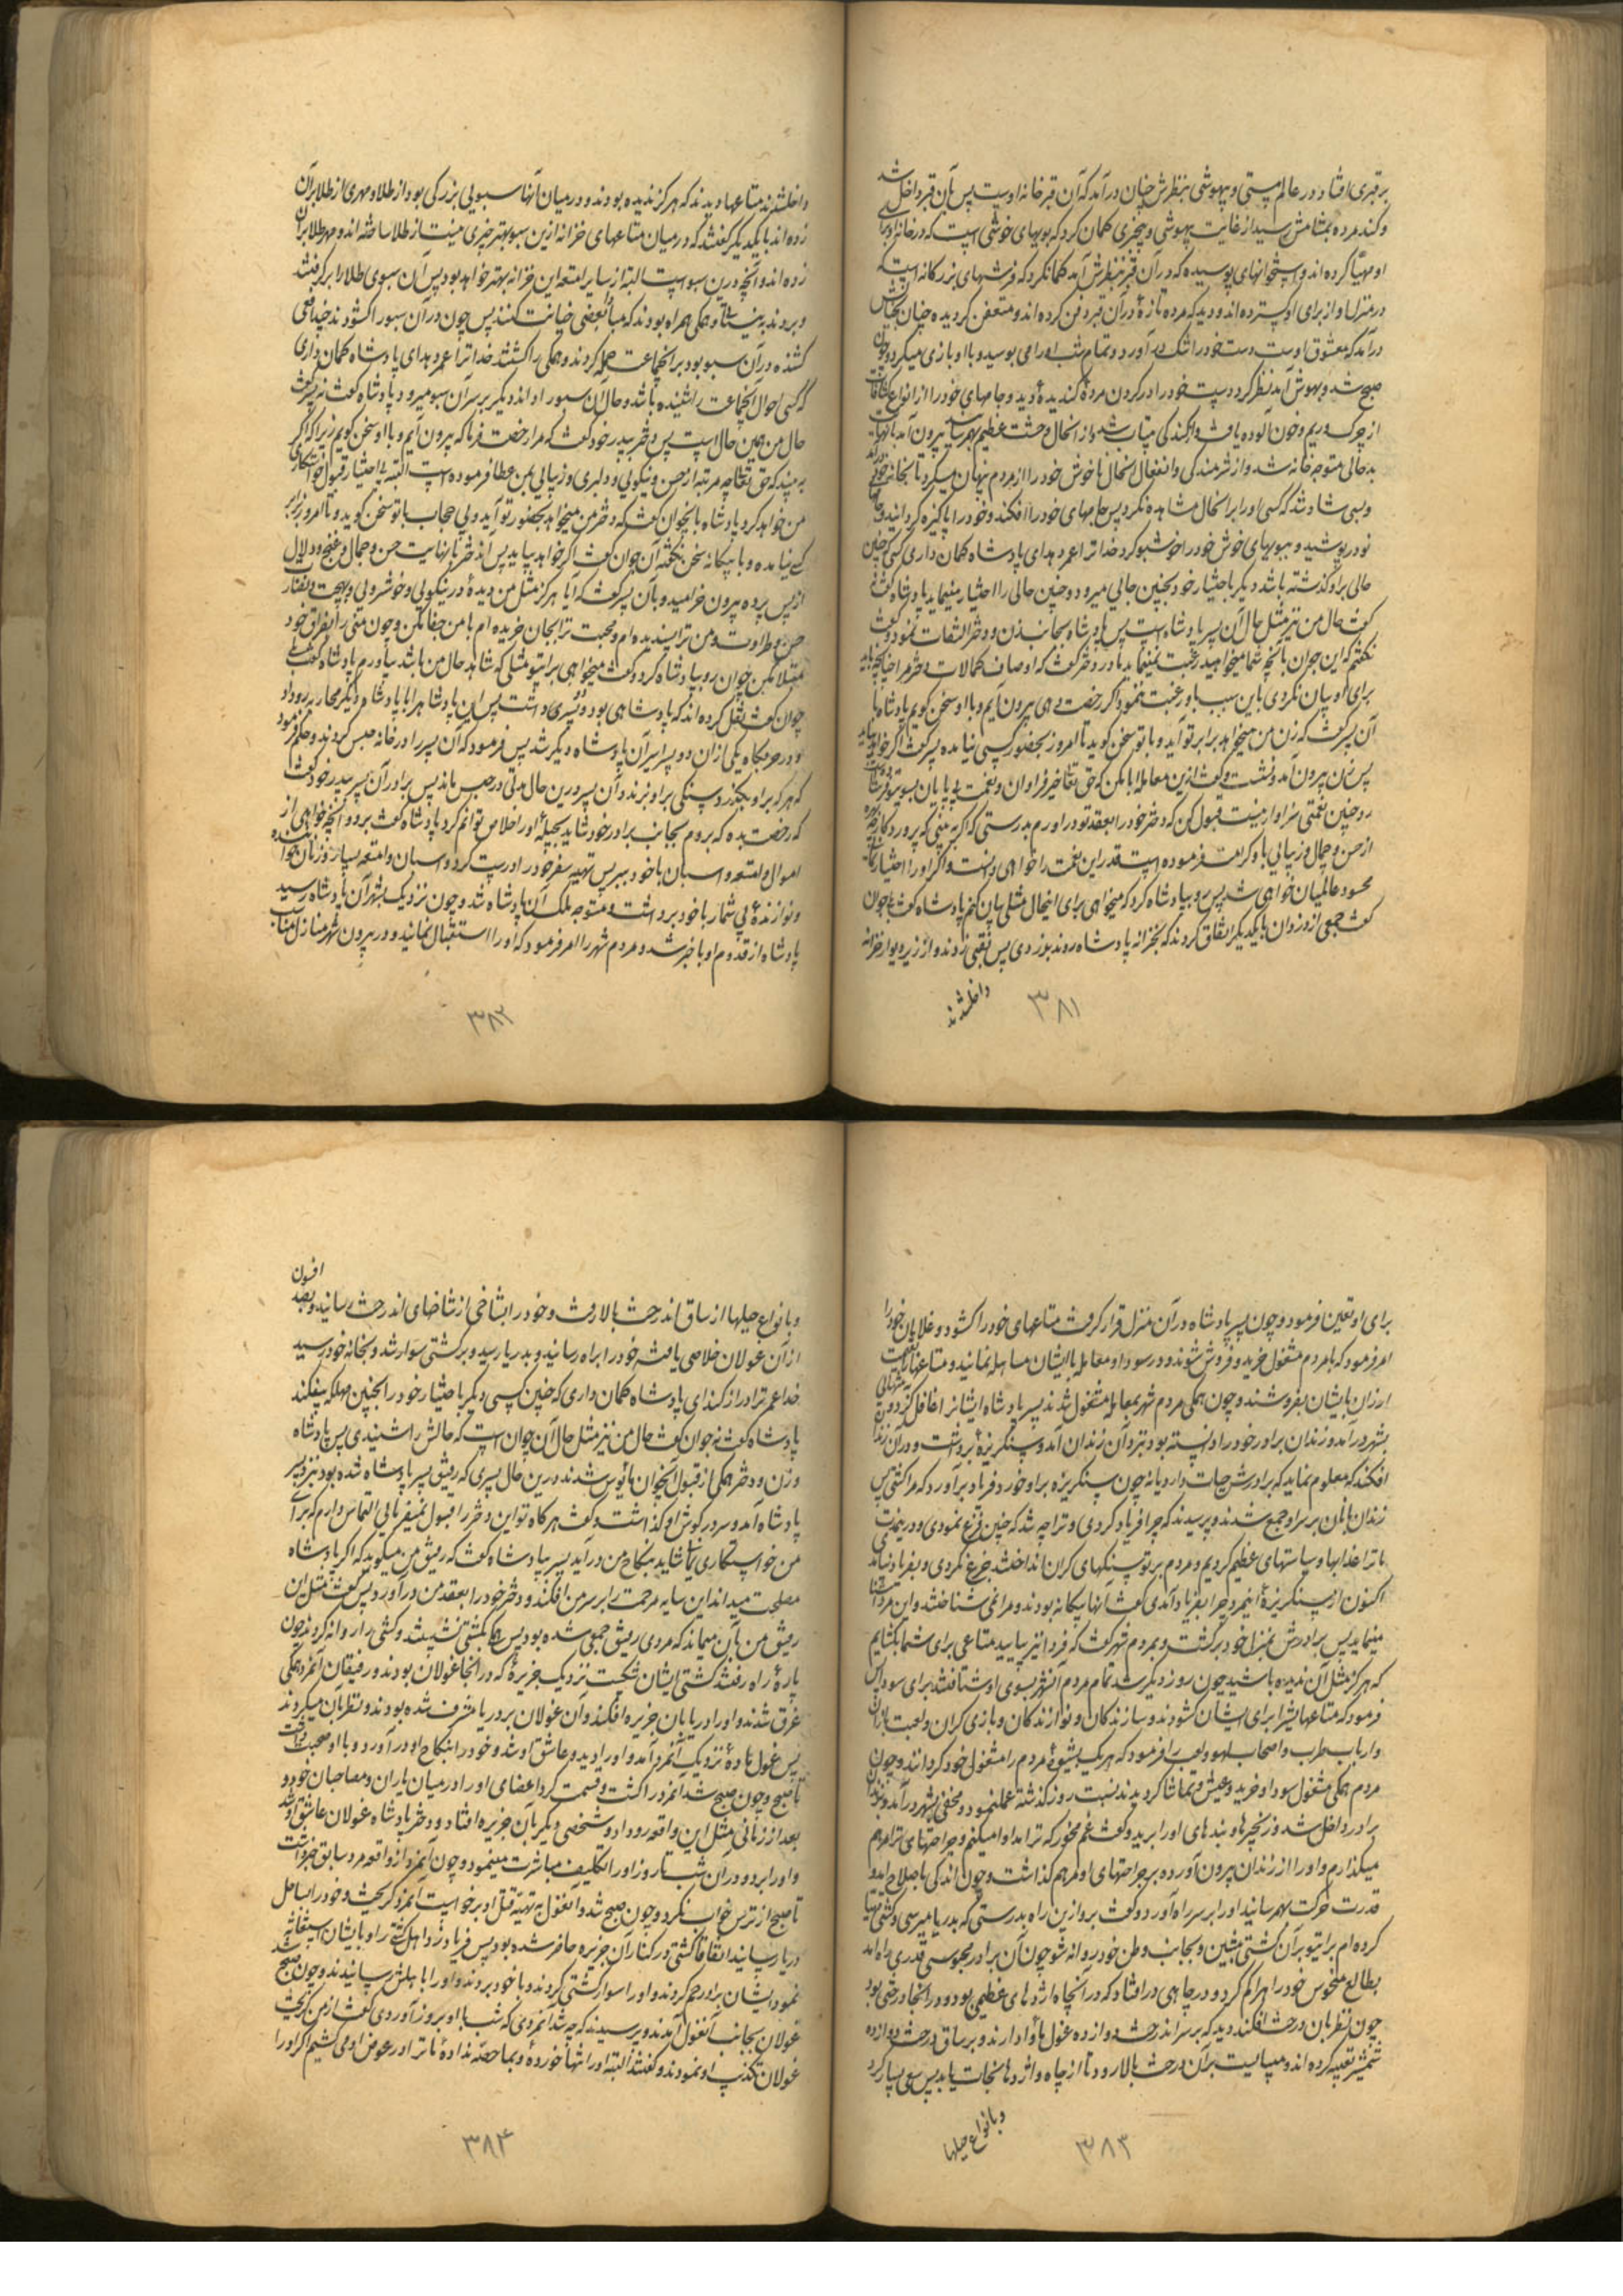 برقبری افتاد و در عالم مستی و بیهوشی بنظرش چنان درآمد که آن قبر خانه اوست پس بآن قبر داخل شد
و کند مرده بمشامش رسید از غایت بیهوشی و بیخبری گمان کرد که بویهای خوشی است که در خانه او برای
او مهیا کرده اند و استخوانهای پوسیده که در آن قبر بنظرش آمد گمان کرد که فرشهای بزرگانه است که
در منزل او از برای او گسترده اند و دید که مرده تازۀ در آن قبر دفن کرده اند و متعفن گردیده چنان بخیالش
درآمد که معشوق اوست دست خود را تنک در آورد و تمام شب او را می بوسید و با او بازی میکرد و چون
صبح شد و بهوش آمد نظر کرد دست خود را در گردن مردۀ گندیدۀ دید و جامهای خود را از انواع کثافات
از چرک و ریم و خون آلوده یافت و از گند کی بیتاب شد و از آنحال وحشت عظیم بهم رسانید بیرون آمد با نهایت
بدحالی متوجه خانه شد و از شرمندگی و انفعال آنحال ناخوش خود را از مردم پنهان میکرد تا بخانه خود درآمد
و بسی شاد شد که کسی او را بر آنحال مشاهده نکرد پس جامهای خود را افکند و خود را پاکیزه گردانید و جامهای
نو در پوشید و ببویهای خوش خود را خوشبو کرد خدا ترا عمر دهد ای پادشاه گمان داری کسی که چنین
حالی بر او گذشته باشد دیگر باختیار خود بچنین جایی میرود و چنین حالی را اختیار مینماید پادشاه گفت نه
گفت حال من نیز مثل حال آن پسر پادشاه است پس پادشاه بجانب زن و دختر التفات نمود و گفت
نگفتم که این جوان بآنچه شما میخواهید رغبت نمینماید مادر دختر گفت که اوصاف کمالات دختر مرا چنانچه باید
برای او بیان نکردی باین سبب باو رغبت ننمود اگر رخصت دهی بیرون آیم و با او سخن گویم پادشاه با
آن پسر گفت که زن من میخواهد برابر تو آید و با تو سخن گوید تا امروز بحضور کسی نیامده پسر گفت اگر خواهد بیاید
پس زن بیرون آمد و نشست و گفت ازین معامله ابا مکن که حق تعالی خیر فراوان و نعمت بی پایان بسوی تو فرستاده
رد چنین نعمتی سزاوار نیست قبول کن که دختر خود را بعقد تو درآورم بدرستی که اگر به بینی که پروردگار چه بهره
از حسن و جمال و زیبایی باو کرامت فرموده است قدر این نعمت را خواهی دانست و اگر او را اختیار نمائی
محسود عالمیان خواهی شد پس رو بپادشاه کرد که میخواهی برای اینحال مثلی بیان کنم پادشاه گفت بلی جوان
گفت جمعی از دزدان با یکدیگر اتفاق کردند که بخزانه پادشاه روند بدزدی پس نقبی زدند و از زیر دیوار خزانه
داخلشدند
۳۸۱
داخلشدند متاعها دیدند که هرگز ندیده بودند و در میان آنها سبویی بزرگی بود از طلا و مهری از طلا بر آن
زده اند با یکدیگر گفتند که در میان متاعهای خزانه ازین سبو بهتر چیزی نیست از طلا ساخته اند و مهر طلا بر آن
زده اند و آنچه درین سبو است البته از سایر امتعه این خزانه بهتر خواهد بود پس آن سبوی طلا را برگرفتند
و بردند به نیستانی و همگی همراه بودند که مبادا بعضی خیانت کنند پس چون در آن سبو را گشودند چند افعی
کشنده در آن سبو بود بر آنجماعت حمله کردند و همگی را کشتند خدا ترا عمر دهد ای پادشاه گمان داری
که کسی احوال آنجماعت را شنیده باشد و حال آن سبو را داند دیگر بر سر آن سبو میرود پادشاه گفت نه پسر گفت
حال من همین حال است پس دختر بپدر خود گفت که مرا رخصت فرما که بیرون آیم و با او سخن گویم زیرا که اگر
ببیند که حق تعالی چه مرتبه از حسن و نیکویی و دلبری و زیبایی بمن عطا فرموده است البته بی اختیار قبول خواستگاری
من خواهد کرد پادشاه بآنجوان گفت که دختر من میخواهد بحضور تو آید و بی حجاب با تو سخن گوید و تا امروز برابر
کسی نیامده و با بیگانه سخن نگفته آن جوان گفت اگر خواهد بیاید پس آندختر با نهایت حسن و جمال و غنج و دلال
از پس پرده بیرون خرامید و بآن پسر گفت که آیا هرگز مثل من دیدۀ در نیکویی و خوشرویی و بهجت و لطافت
حسن و طراوت و من ترا پسندیده ام و محبت ترا بجان خریده ام با من جفا مکن و چون منی را بفراق خود
مبتلا مکن جوان رو بپادشاه کرد و گفت میخواهی برای تو مثلی که شاهد حال من باشد بیاورم پادشاه گفت بلی
جوان گفت نقل کرده اند که پادشاهی بود دو پسری داشت پس این پادشاه را با پادشاهی دیگر محاربه رو داد
و در حربگاه یکی از آن دو پسر اسیر آن پادشاه دیگر شد پس فرمود که آن پسر را در خانه حبس کردند و حکم فرمود
که هرکه بر او بگذرد سنگی بر او بزند و آن پسر درین حال مدتی در حبس ماند پس برادر آن پسر بپدر خود گفت
که رخصت بده که بروم بجانب برادر خود شاید بحیلۀ او را خلاص توانم کرد پادشاه گفت برو و آنچه خواهی از
اموال و امتعه و اسبان با خود ببر پس تهیه سفر خود را درست کرد و اسبان و امتعه بسیار و زنان خواننده
و نوازندۀ بی شمار با خود برداشت و متوجه ملک آن پادشاه شد و چون نزدیک بشهر آن پادشاه رسید
پادشاه از قدوم او با خبر شد و مردم شهر را امر فرمود که او را استقبال نمایند و در بیرون شهر منازل مناسب
۳۸۲
برای او تعیین فرمود و چون پسر پادشاه در آن منزل قرار گرفت متاعهای خود را گشود و غلامان خود را
امر فرمود که با مردم مشغول خرید و فروش شوند و در سودا و معامله با ایشان مساهله نمایند و متاعها را بقیمت
ارزان بایشان بفروشند و چون همگی مردم شهر بمعامله مشغول شدند پسر پادشاه ایشانرا غافل کرد و به تنهایی
بشهر درآمد و زندان برادر خود را دانسته بود نزد آن زندان آمد و سنگریزۀ برداشت و در آن زندان
افکند که معلوم نماید که برادرش حیات دارد یا نه چون سنگریزه بر او خورد فریاد برآورد که مرا کشتی پس
زندان بانان بر سر او جمع شدند و پرسیدند که چرا فریاد کردی و ترا چه شد که چنین فزع نمودی و درین مدت
ما ترا عذابها و سیاستهای عظیم کردیم و مردم بر تو سنگهای گران انداختند جزع نکردی و بفریاد نیامدی
اکنون از سنگریزۀ اینمرد چرا بفریاد آمدی گفت آنها بیگانه بودند و مرا نمی شناختند و این مرد آشنا
مینماید پس برادرش بمنزل خود برگشت و بمردم شهر گفت که فردا نیز بیایید متاعی برای شما بگشایم
که هرگز مثل آن ندیده باشید چون روز دیگر شد تمام مردم آنشهر بسوی او شتافتند برای سودا پس
فرمود که متاعهایشرا برای ایشان گشودند و سازندگان و نوازندگان و بازیگران و لعبت بازان
و ارباب طرب و اصحاب لهو و لعب را فرمود که هر یک بشیوۀ مردم را مشغول خود گردانند و چون
مردم همگی مشغول سودا و خرید و عیش و تماشا گردیدند بسنت روز گذشته عمل نمود و مخفی بشهر درآمد و بزندان
برادر داخل شد و زنجیرها و بندهای او را برید و گفت غم مخور که ترا مداوا میکنم و جراحتهای ترا مرهم
میگذارم و او را از زندان بیرون آورده بر جراحتهای او مرهم گذاشت و چون اندکی باصلاح آمد و
قدرت حرکت بهم رسانید او را بر سر راه آورد و گفت برو ازین راه بدرستی که بدریا میرسی و کشتی مهیا
کرده ام برای تو بر آن کشتی بنشین و بجانب وطن خود روانه شو چون آن برادر محبوس قدری راه آمد
بطالع منحوس خود راه را گم کرد و در چاهی در افتاد که در آنچاه اژدهای عظیمی بود و در آنجا درختی بود
چون نظر بآن درخت افکند دید که بر سر آندرخت دوازده غول مأوا دارند و بر ساق درخت دوازده
شمشیر تعبیه کرده اند و میبایست بر آن درخت بالا رود تا از چاه و اژدها نجات یابد پس سعی بسیار کرد
و بانواع حیلها
۳۸۳
و بانواع حیلها از ساق آندرخت بالا رفت و خود را بشاخی از شاخهای آندرخت رسانید و بصد افسون
از آن غولان خلاصی یافته خود را براه رسانید و بدریا رسید و بر کشتی سوار شد و بخانه خود رسید
خدا عمر ترا دراز کند ای پادشاه گمان داری که چنین کسی دیگر باختیار خود را بچنین مهلکه بیفکند
پادشاه گفت نه جوان گفت حال من نیز مثل حال آن جوان است که حالش را شنیدی پس پادشاه
و زن و دختر همگی از قبول آنجوان مأیوس شدند درین حال پسری که رفیق پسر پادشاه شده بود نزد پسر
پادشاه آمد و سر در گوش او گذاشت و گفت هرگاه تو این دختر را قبول نمیفرمایی التماس دارم که برای
من خواستگاری نمایی شاید بنکاح من درآید پسر بپادشاه گفت که رفیق من میگوید که اگر پادشاه
مصلحت میداند این سایه مرحمت را بر سر من افکند و دختر خود را بعقد من درآورد پس گفت مثل این
رفیق من بآن میماند که مردی رفیق جمعی شده بود پس همگی بکشتی نشستند و کشتی را روانه کردند چون
پارۀ راه رفتند کشتی ایشان شکست نزدیک جزیرۀ که در آنجا غولان بودند و رفیقان آنمرد همگی
غرق شدند و او را دریا بآن جزیره افکند و آن غولان بر دریا مشرف شده بودند و نظر بآن میکردند
پس غول مادۀ نزدیک آنمرد آمد و او را دید و عاشق او شد و خود را بنکاح او درآورد و با او صحبت داشت
تا صبح و چون صبح شد آنمرد را کشت و قسمت کرد اعضای او را در میان یاران و مصاحبان خود و
بعد از زمانی مثل این واقعه رو داد و شخصی دیگر بآن جزیره افتاد و دختر پادشاه غولان عاشق او شد
و او را برد و در آن شب تا روز او را تکلیف مباشرت مینمود و چون آنمرد از واقعه مرد سابق خبر داشت
تا صبح از ترس خواب نکرد و چون صبح شد و آنغول به تهیه قتل او برخواست آنمرد گریخت و خود را بساحل
دریا رسانید اتفاقا کشتی در کنار آن جزیره حاضر شده بود پس فریاد زد و اهل کشتی را و بایشان استغاثه
نمود ایشان بر او رحم کردند و او را سوار کشتی کردند و با خود بردند و او را باهلش رسانیدند و چون صبح شد
غولان بجانب آنغول آمدند و پرسیدند که چه شد آنمردی که شب با او بروز آوردی گفت از من گریخت
غولان تکذیب او نمودند و گفتند البته او را تنها خوردۀ و بما حصه ندادۀ ما ترا در عوض او می کشیم اگر او را
۳۸۴